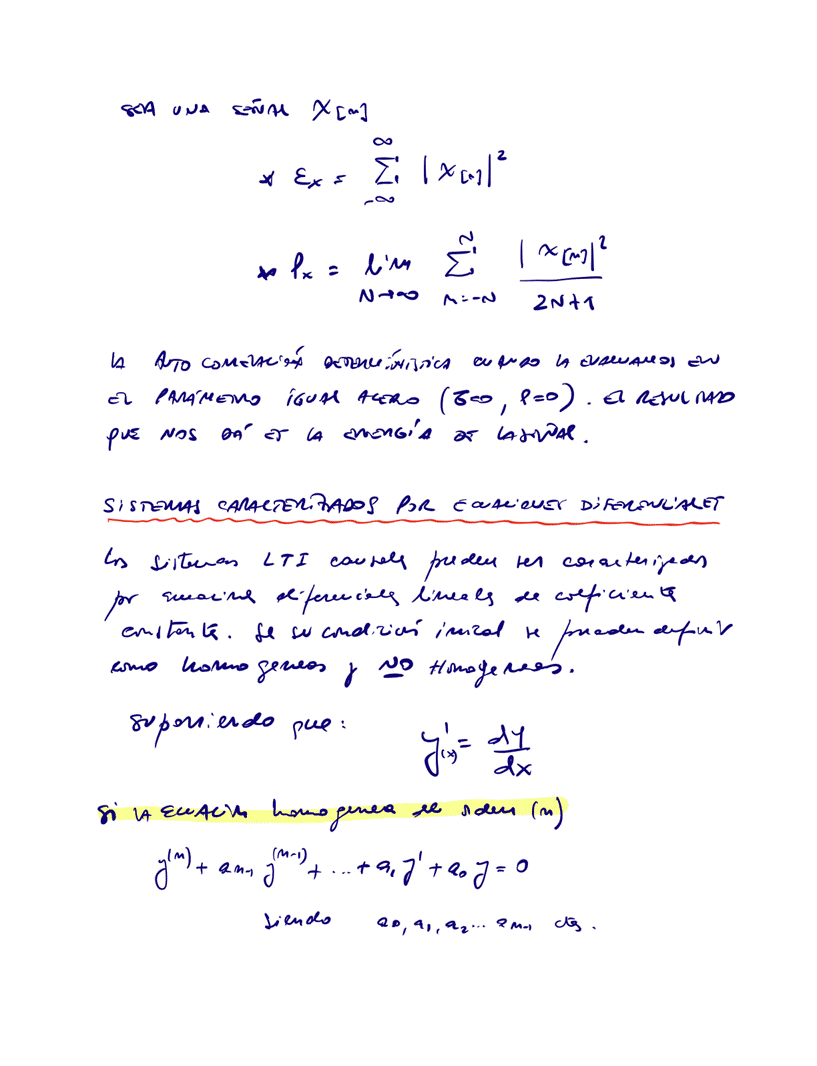 SEA UNA SEÑAL X[n]
* Ex = ∞ Σ -∞ |x[n]|²
* Px = lim N→∞ N Σ n=-N |x[n]|² / 2N+1
LA AUTO CORRELACIÓN DETERMINÍSTICA CUANDO LA EVALUAMOS EN
EL PARÁMETRO IGUAL A CERO (τ=0, l=0). EL RESULTADO
QUE NOS DÁ ES LA ENERGÍA DE LA SEÑAL.
SISTEMAS CARACTERIZADOS POR ECUACIONES DIFERENCIALES
Los sistemas LTI causales pueden ser caracterizados
por ecuaciones diferenciales lineales de coeficiente
constante. De su condición inicial se pueden definir
como homogeneos y NO Homogeneos.
suponiendo que: y'(x) = dy/dx
Si LA ECUACIÓN homogenea de orden (n)
y⁽ⁿ⁾ + aₙ₋₁ y⁽ⁿ⁻¹⁾ + ... + a₁ y' + a₀ y = 0
siendo a₀, a₁, a₂ ... aₙ₋₁ ctes.